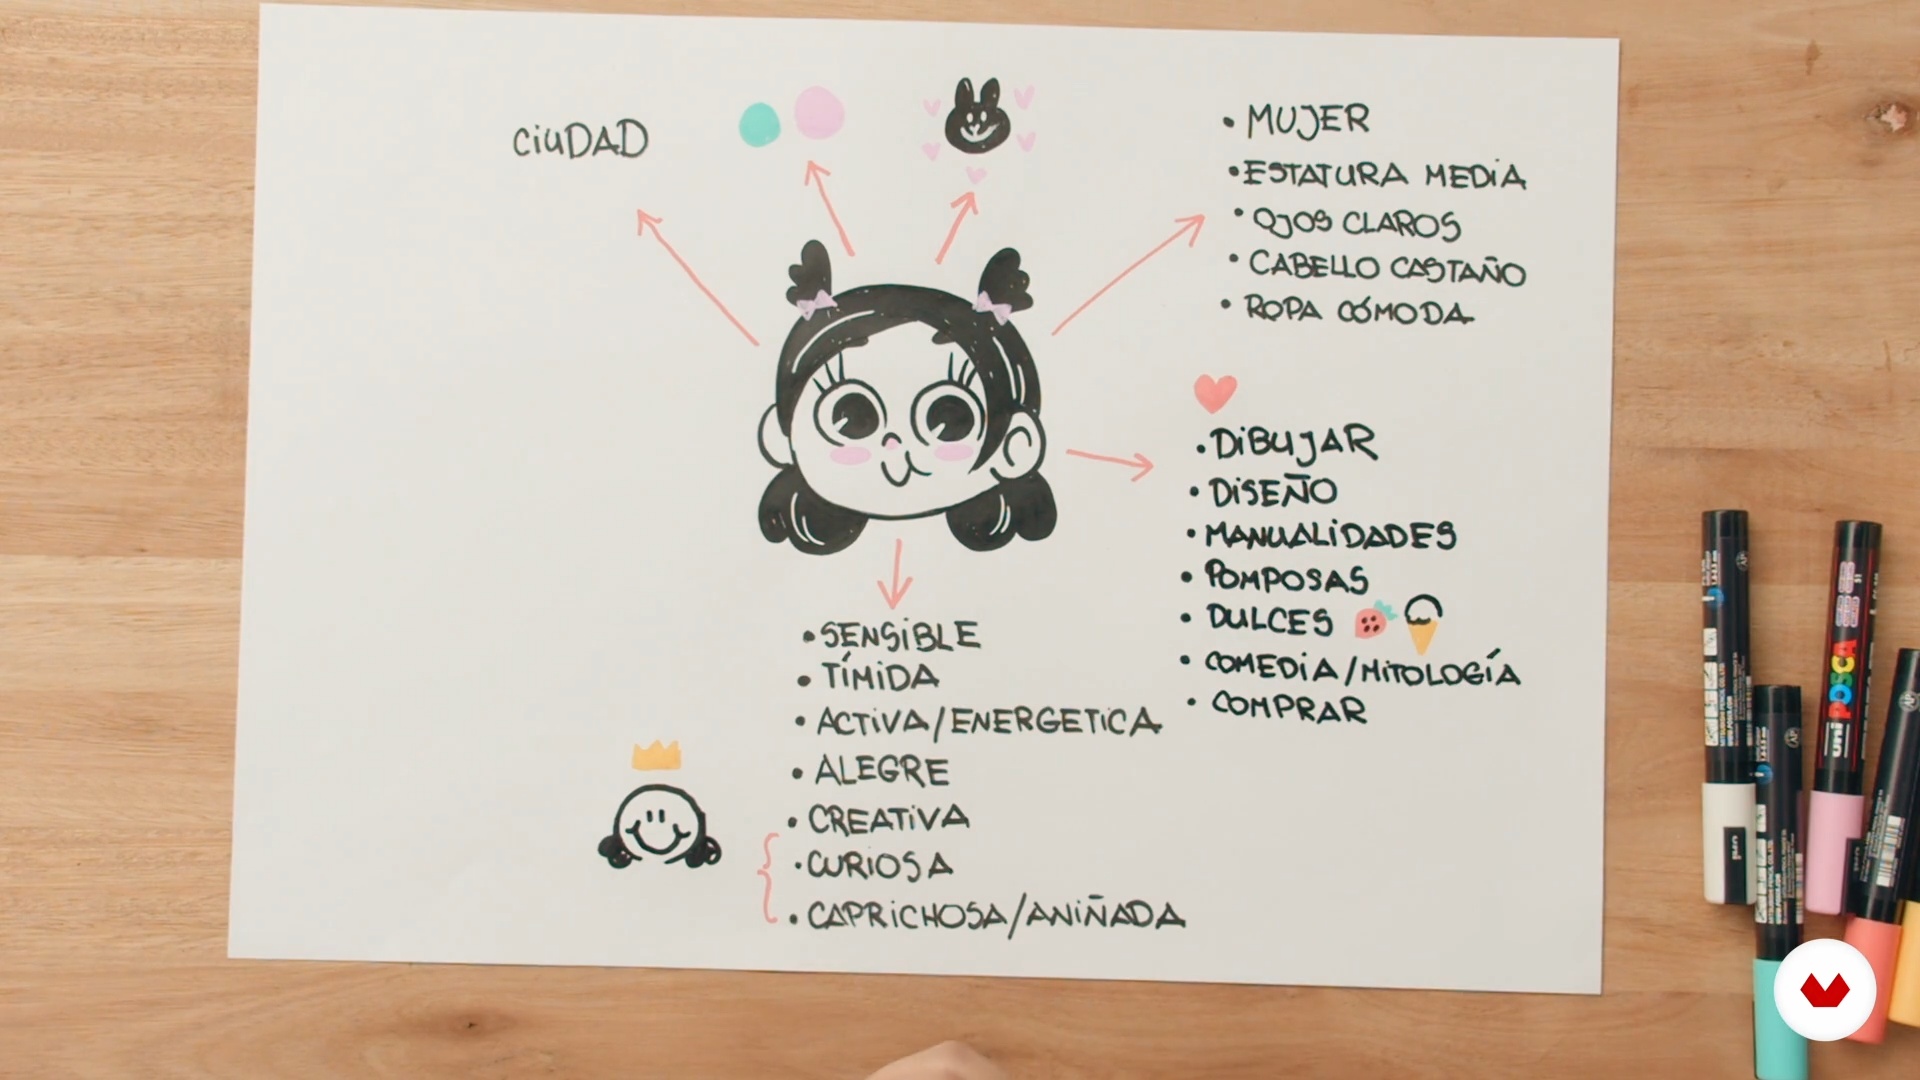 CiUDAD
• MUJER
• ESTATURA MEDiA
• OJOS CLAROS
• CABELLO CASTAÑO
• ROPA CÓMODA
• DiBUJAR
• DiSEÑO
• MANUALiDADES
• POMPOSAS
• DULCES
• COMEDiA/MiTOLOGÍA
• COMPRAR
• SENSiBLE
• TÍMiDA
• ACTiVA/ENERGETiCA
• ALEGRE
• CREATiVA
• CURiOSA
• CAPRiCHOSA/ANiÑADA
uni POSCA
uni